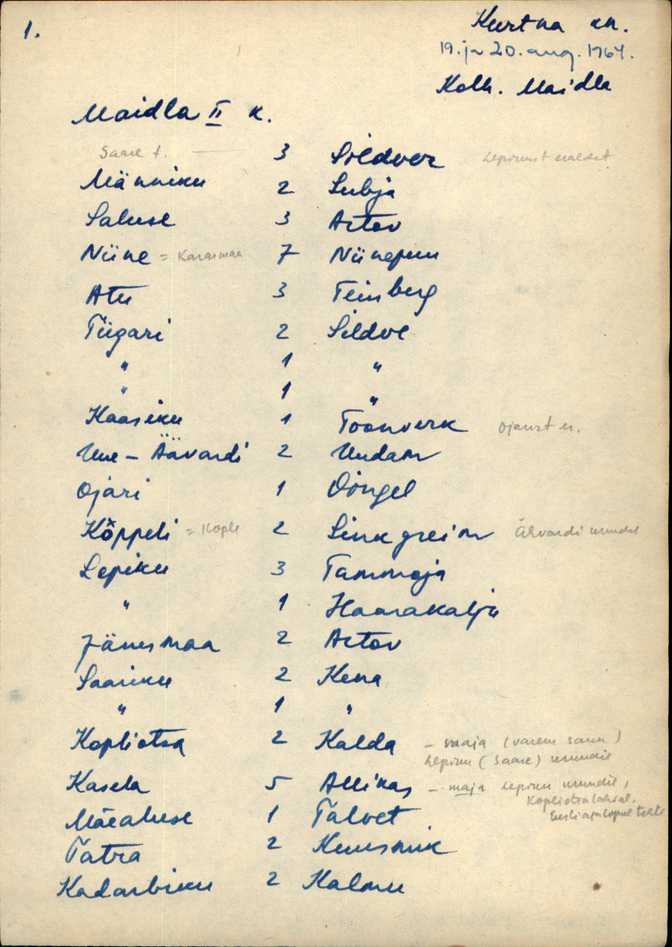 1.
Kurtna kn.
19. ja 20. aug. 1964.
Kolh. Maidla
Maidla II k.
Saare t. — 3 Sildver
Männiku 2 Lubja
Saluse 3 Artov
Niine = Karasmaa 7 Niinepuu
Atu 3 Teinberg
Tiigari 2 Sildve
" 1 "
" 1 "
Kaasiku 1 Töönverk
Uue-Äävardi 2 Undam
Ojari 1 Õõngel
Köppeli = Kople 2 Sinkgreim
Lepiku 3 Tammoja
" 1 Haarakalju
Jänesmaa 2 Artov
Saariku 2 Kena
" 1 "
Kopliotsa 2 Kalda – maja (varem saun)
Lepiku (Saare) mundil
Kasela 5 Allikas – maja Lepiku mundil,
Mäealuse 1 Talvet
Tatra 2 Kuusmik
Kadarbiku 2 Kalmu